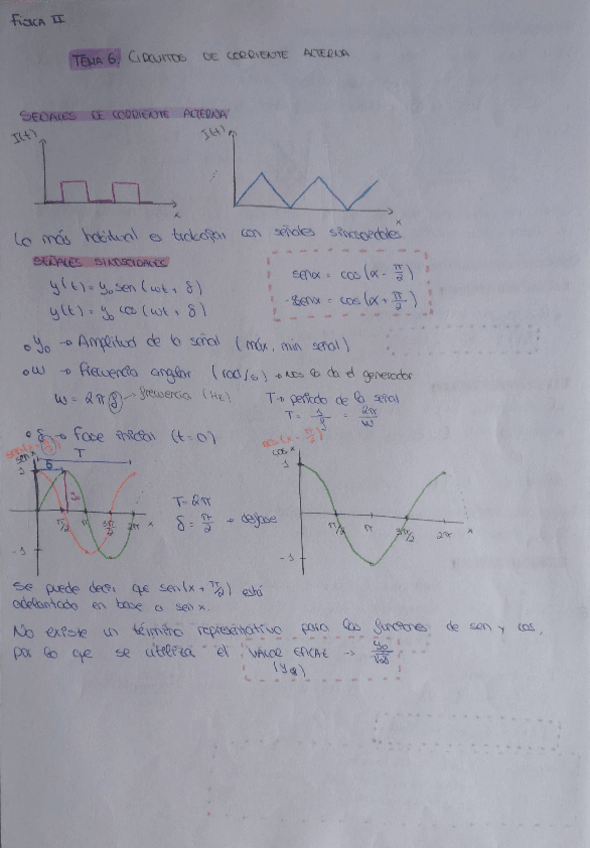 FÍSICA II
TEMA 6: CIRCUITOS DE CORRIENTE ALTERNA
SEÑALES DE CORRIENTE ALTERNA
I(t)
I(t)
x
x
Lo más habitual es trabajar con señales sinusoidales
SEÑALES SINUSOIDALES
y(t) = y₀ sen (ωt + δ)
y(t) = y₀ cos (ωt + δ)
sen x = cos (x - π/2)
-sen x = cos (x + π/2)
y₀ → Amplitud de la señal (máx, min señal)
ω → Frecuencia angular (rad/s) → nos la da el generador
ω = 2π f → frecuencia (Hz)
T → período de la señal
T = 1/f = 2π/ω
δ → Fase inicial (t=0)
sen x
T
δ
1
-1
π/2 π 3π/2 2π x
T = 2π
δ = π/2 → desfase
cos (x - π/2)
cos x
1
-1
π/2 π 3π/2 2π x
Se puede decir que sen (x + π/2) está
adelantado en base a sen x.
No existe un término representativo para las funciones de sen y cos,
por lo que se utiliza el VALOR EFICAZ → y₀/√2